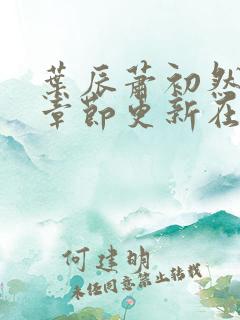 葉辰蕭初然
章節更新在
何建明
未经同意禁止转载